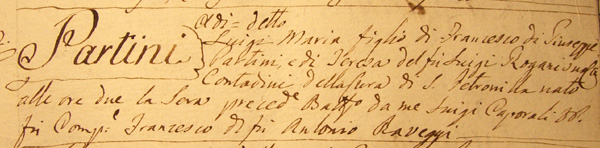 Partini
Adi = detto
Luigi Maria figlio di Francesco di Giuseppe
Partini, e di Teresa del fu Luigi Rogari sua
Contadini della Cura di S. Petronilla nato
alle ore due la Sera preced.e Batt.o da me Luigi Caporali
fu Comp.e Francesco di fu Antonio Raveggi